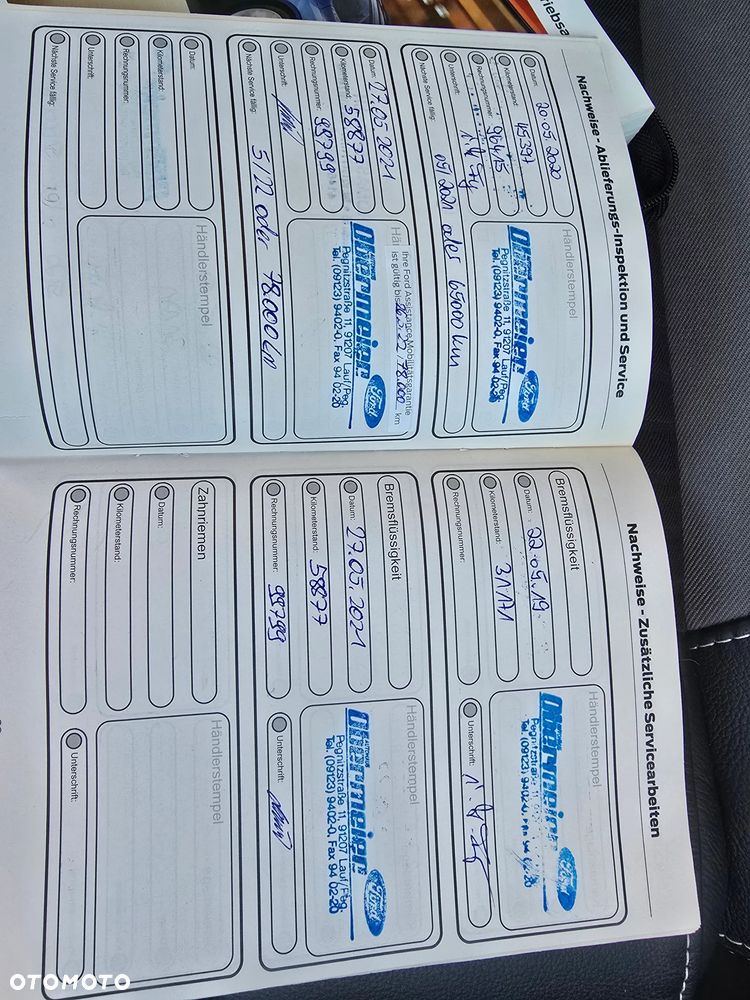 Nachweise - Ablieferungs-Inspektion und Service
Datum: 20.05.2020
Kilometerstand: 45391
Rechnungsnummer: 96415
Unterschrift:
Nächste Service fällig: 05/2021 oder 65000 km
Händlerstempel
Ottermeier
Pegnitzstraße 11, 91207 Lauf/Peg.
Tel. (09123) 9402-0, Fax 94 02-20
Ford
Datum: 27.05.2021
Kilometerstand: 58877
Rechnungsnummer: 99799
Unterschrift:
Nächste Service fällig: 5/22 oder 78.000 km
Ihre Ford Assistance Mobilitätsgarantie
ist gültig bis 22 / 78.000 km
Ottermeier
Pegnitzstraße 11, 91207 Lauf/Peg.
Tel. (09123) 9402-0, Fax 94 02-20
Ford
Datum:
Kilometerstand:
Rechnungsnummer:
Unterschrift:
Nächste Service fällig:
Händlerstempel
Nachweise - Zusätzliche Servicearbeiten
Bremsflüssigkeit
Datum: 22.05.19
Kilometerstand: 31171
Rechnungsnummer:
Händlerstempel
Ottermeier
Pegnitzstraße 11
Tel. (09123) 9402-0,
Ford
Unterschrift:
Bremsflüssigkeit
Datum: 27.05.2021
Kilometerstand: 58877
Rechnungsnummer: 99799
Händlerstempel
Ottermeier
Pegnitzstraße 11, 91207 Lauf/Peg.
Tel. (09123) 9402-0, Fax 94 02-20
Ford
Unterschrift:
Zahnriemen
Datum:
Kilometerstand:
Rechnungsnummer:
Händlerstempel
Unterschrift:
OTOMOTO